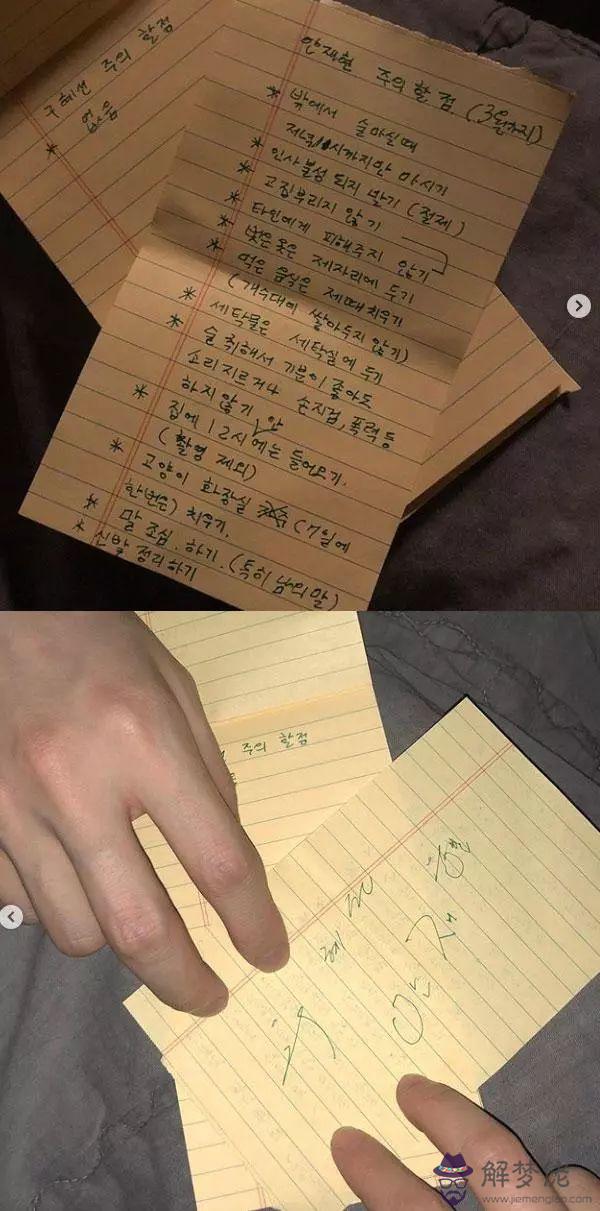 구혜선 주의 할점
* 없음
안재현 주의 할 점. (3월까지)
* 밖에서 술마실때
저녁 11시까지만 마시기
* 인사불성 되지 말기 (절제)
* 고집부리지 않기
* 타인에게 피해주지 않기
* 벗은옷은 제자리에 두기
* 먹은 음식은 제때 치우기
(개수대에 쌓아두지 않기)
* 세탁물은 세탁실에 두기
* 술 취해서 기분이 좋아도
소리지르거나 손지검, 폭력 등
하지않기
* 집에 12시 안에는 들어오기.
(촬영 제외)
* 고양이 화장실 (7일에
한번은) 치우기.
* 말 조심. 하기. (특히 남의 말)
* 신발 정리하기
주의 할점
구혜선
안재현
解梦佬
www.jiemenglao.com